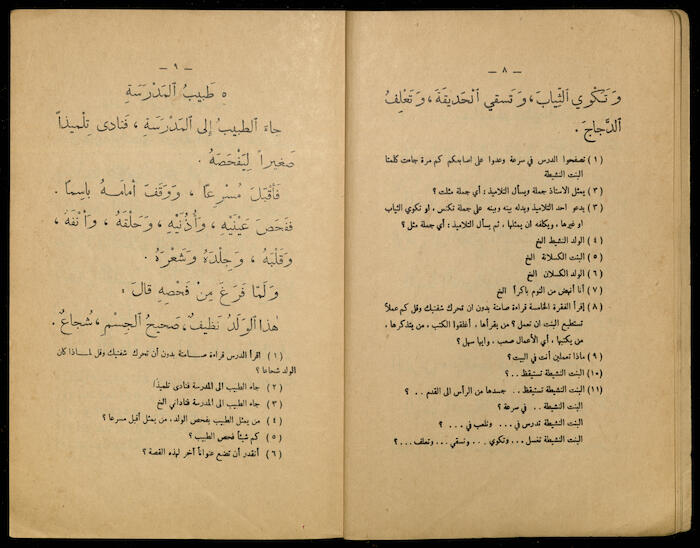 — ٨ —
وَتَكْوِي ٱلثِّيَابَ، وَتَسقي ٱلْحَديقَةَ، وَتَعْلِفُ
ٱلدَّجاجَ .
(١) تصفحوا الدرس في سرعة وعدوا على اصابعكم كم مرة جاءت كلمتا
البنت النشيطة
(٢) يمثل الاستاذ جملة ويسأل التلاميذ : أي جملة مثلت ؟
(٣) يدعو احد التلاميذ ويدله بينه وبينه على جملة تكنس، او تكوي الثياب
او غيرها، ويكلفه ان يمثلها، ثم يسأل التلاميذ : أي جملة مثل ؟
(٤) الولد النشيط الخ
(٥) البنت الكسلانة الخ
(٦) الولد الكسلان الخ
(٧) أنا أنهض من النوم باكراً الخ
(٨) إقرأ الفقرة الخامسة قراءة صامتة بدون ان تحرك شفتيك وقل كم عملاً
تستطيع البنت ان تعمل ؟ من يقرأها، أغلقوا الكتب، من يتذكرها،
من يكتبها، أي الأعمال صعب، وايها سهل ؟
(٩) ماذا تعملين أنت في البيت ؟
(١٠) البنت النشيطة تستيقظ . . ؟
(١١) البنت النشيطة تستيقظ . . جسدها من الرأس الى القدم . . ؟
البنت النشيطة . . في سرعة ؟
البنت النشيطة تدرس في . . . وتلعب في . . . ؟
البنت النشيطة تغسل . . . وتكوي . . . وتسقي . . . وتعلف . . . ؟
— ٩ —
٥ طَبيبُ ٱلمَدْرَسَةِ
جاءَ ٱلطبيبُ إلى ٱلمَدْرَسَةِ ، فَنادى تِلْميذاً
صَغيراً لِيَفْحَصَهُ .
فَأَقْبَلَ مُسْرِعًا ، وَوَقَفَ أَمامَهُ باسِمًا .
فَفَحَصَ عَيْنَيْهِ ، وَأُذُنَيْهِ ، وَحَلْقَهُ ، وَأَنْفَهُ ،
وَقَلْبَهُ ، وَجِلْدَهُ وَشَعْرَهُ .
وَلَمّا فَرَغَ مِنْ فَحْصِهِ قالَ :
هٰذا ٱلوَلَدُ نَظيفٌ، صَحيحُ ٱلجِسْمِ، شُجاعٌ .
(١) اقرأ الدرس قراءة صامتة بدون أن تحرك شفتيك وقل لماذا كان
الولد شجاعا ؟
(٢) جاء الطبيب الى المدرسة فنادى تلميذاً
(٣) جاء الطبيب الى المدرسة فناداني الخ
(٤) من يمثل الطبيب يفحص الولد، من يمثل أقبل مسرعا ؟
(٥) كم شيئاً فحص الطبيب ؟
(٦) أتقدر أن تضع عنواناً آخر لهذه القصة ؟